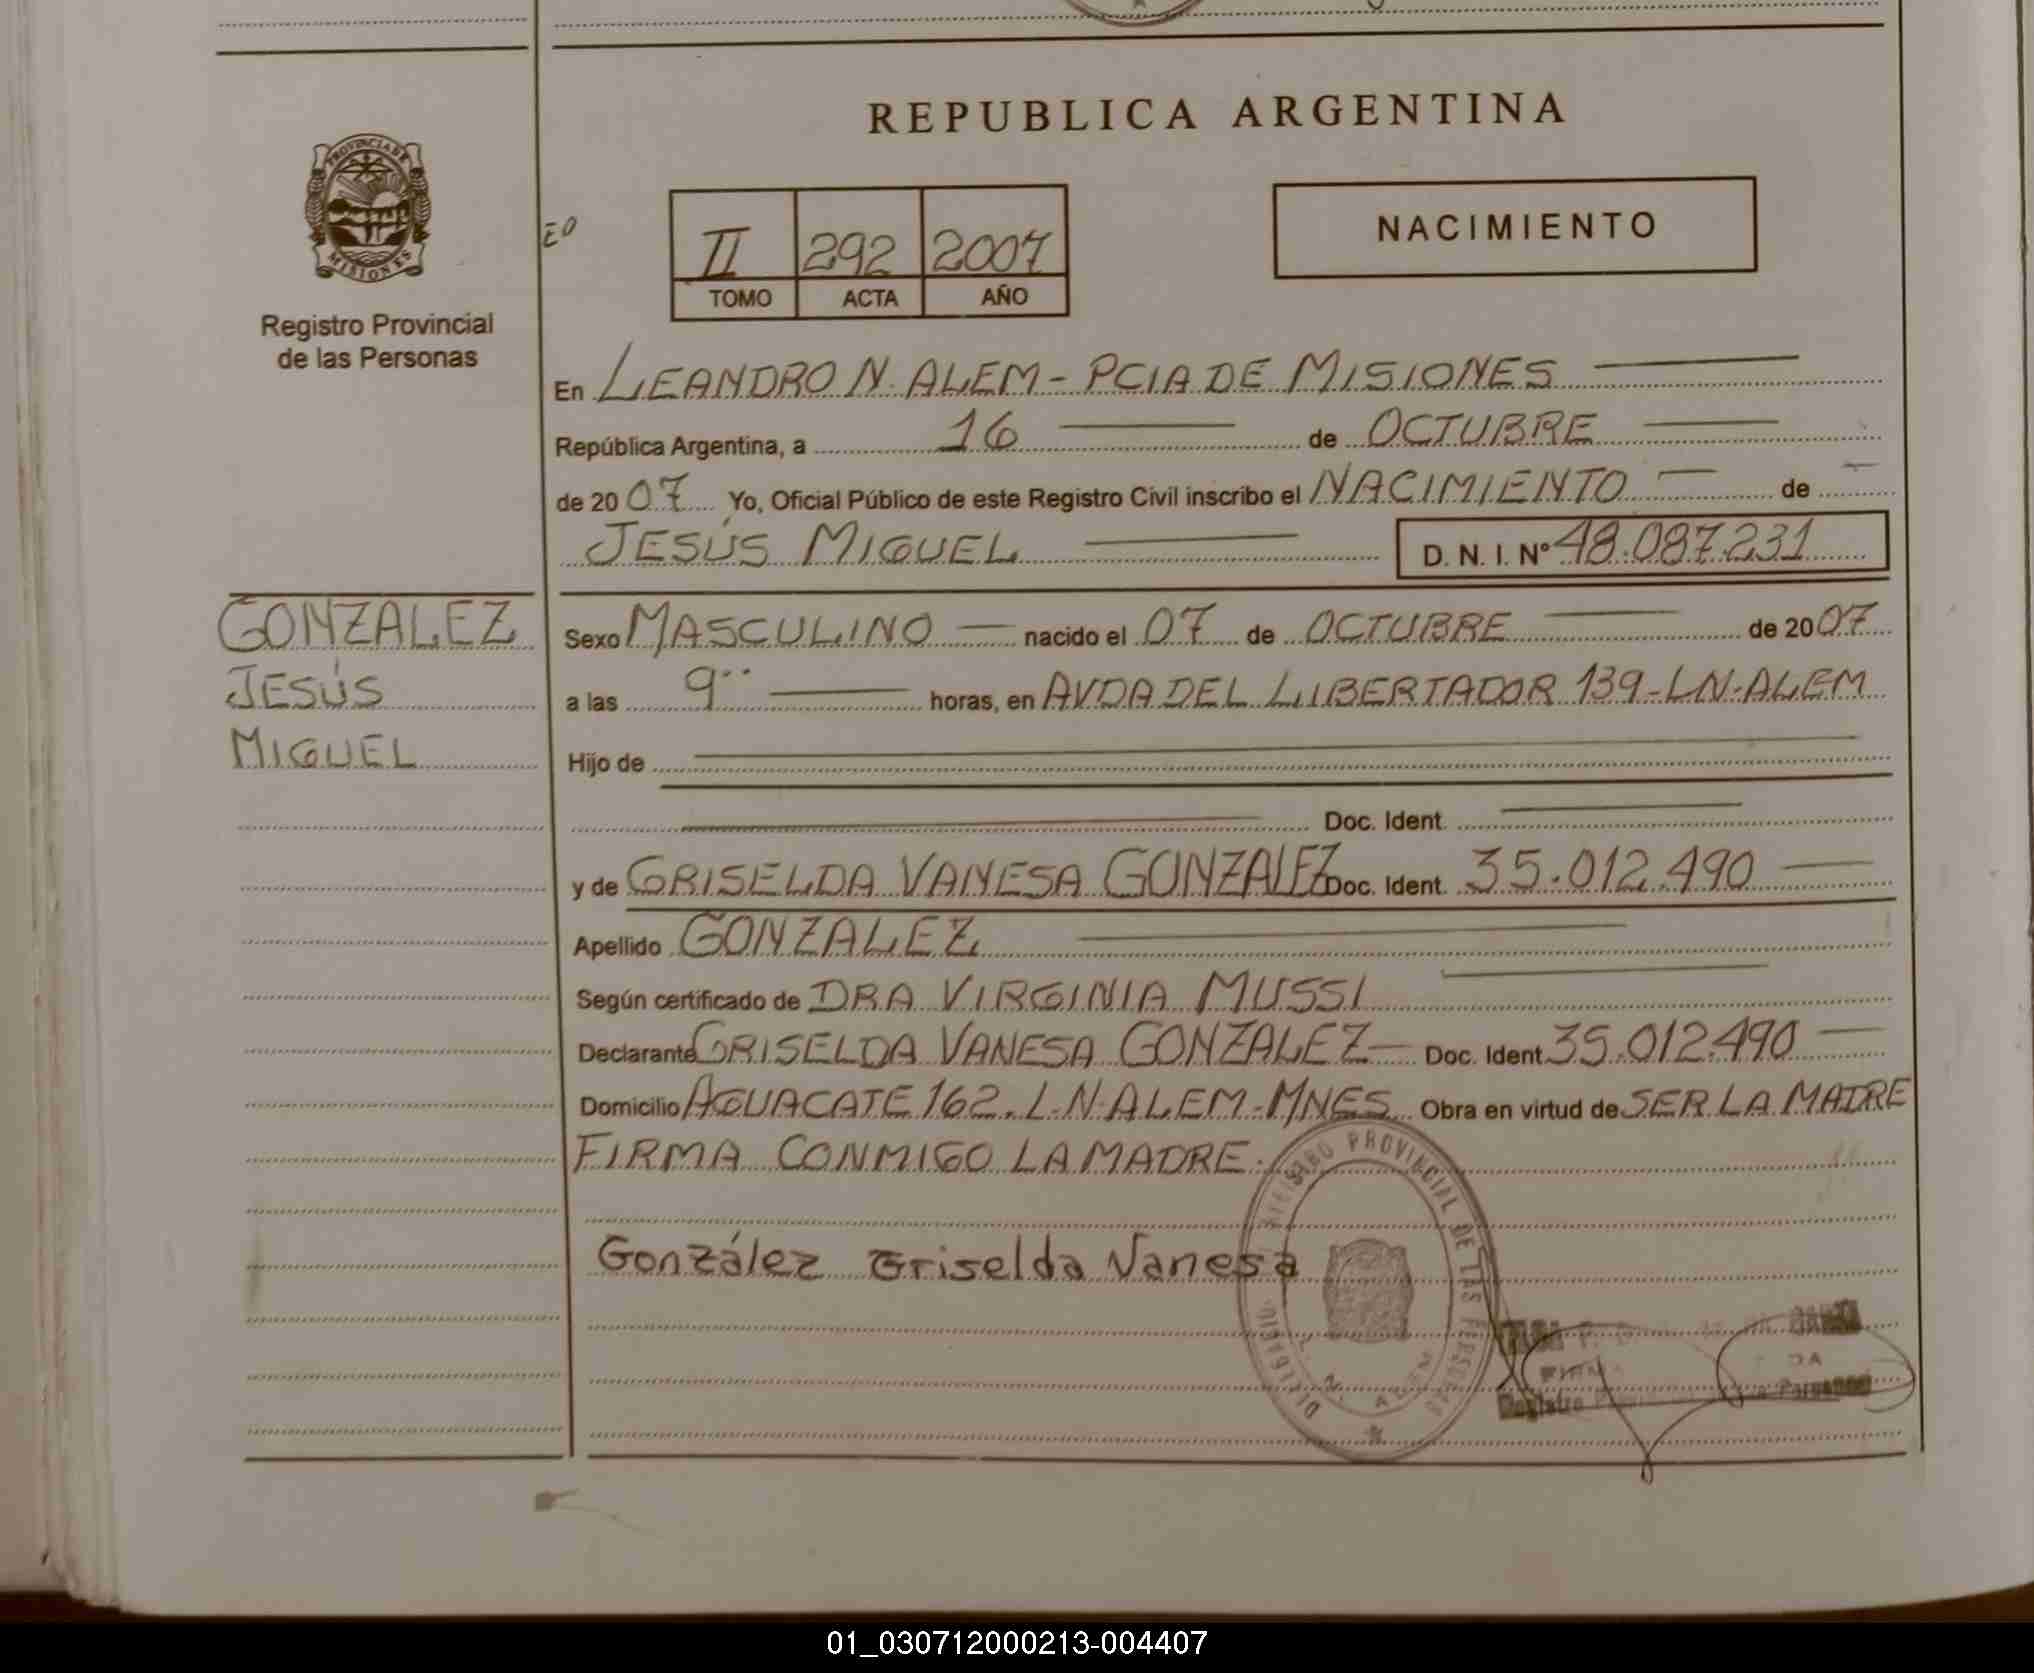 REPUBLICA ARGENTINA
PROVINCIA DE
MISIONES
Registro Provincial
de las Personas
EO
II 292 2007
TOMO ACTA AÑO
NACIMIENTO
En LEANDRO N. ALEM - PCIA DE MISIONES
República Argentina, a 16 de OCTUBRE
de 2007 Yo, Oficial Público de este Registro Civil inscribo el NACIMIENTO de
JESÚS MIGUEL D. N. I. Nº 48.087.231
GONZALEZ
JESÚS
MIGUEL
Sexo MASCULINO nacido el 07 de OCTUBRE de 2007
a las 9 horas, en AVDA DEL LIBERTADOR 139-L.N.ALEM
Hijo de
Doc. Ident.
y de GRISELDA VANESA GONZALEZ Doc. Ident. 35.012.490
Apellido GONZALEZ
Según certificado de DRA VIRGINIA MUSSI
Declarante GRISELDA VANESA GONZALEZ Doc. Ident 35.012.490
Domicilio AGUACATE 162. L.N.ALEM-MNES Obra en virtud de SER LA MADRE
FIRMA CONMIGO LA MADRE.
González Griselda Vanesa
REGISTRO PROVINCIAL DE LAS PERSONAS
L. N. ALEM
Registro
01_030712000213-004407